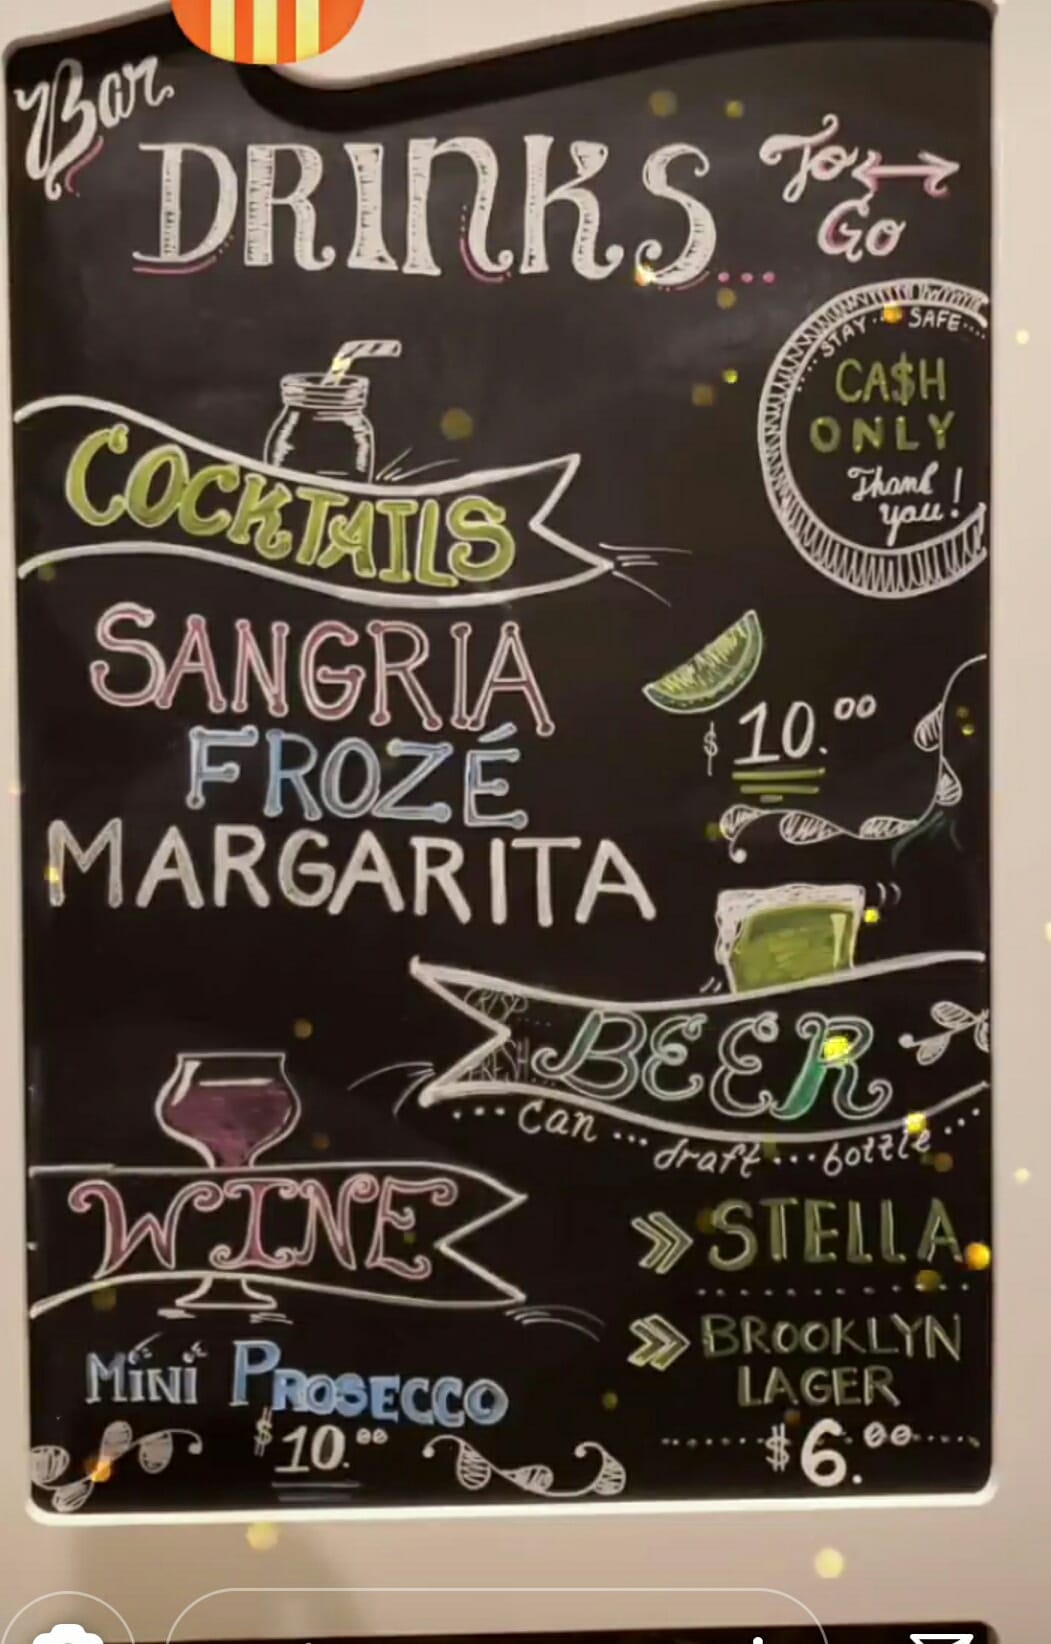 Bar
DRINKS...
To
Go
STAY... SAFE....
CA$H
ONLY
Thank
you!
COCKTAILS
SANGRIA
FROZÉ
MARGARITA
$ 10.00
CRISP...
FRESH...
BEER
... Can ... draft ... bottle ...
STELLA
BROOKLYN
LAGER
$6.00
WINE
MiNi PROSECCO
$10.00